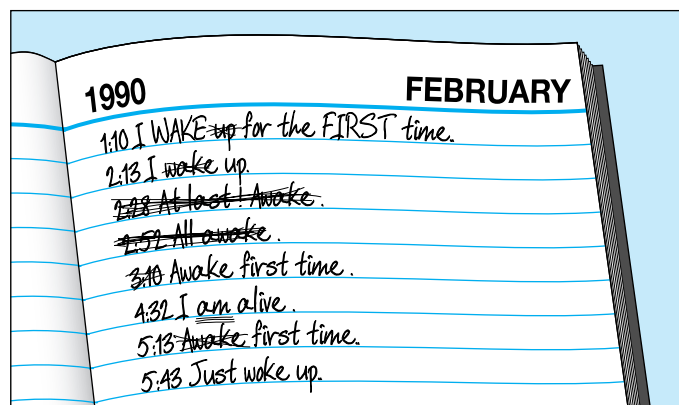 1990 FEBRUARY
1:10 I WAKE up for the FIRST time.
2:13 I wake up.
2:28 At last! Awake.
2:52 All awake.
3:10 Awake first time.
4:32 I am alive.
5:13 Awake first time.
5:43 Just woke up.